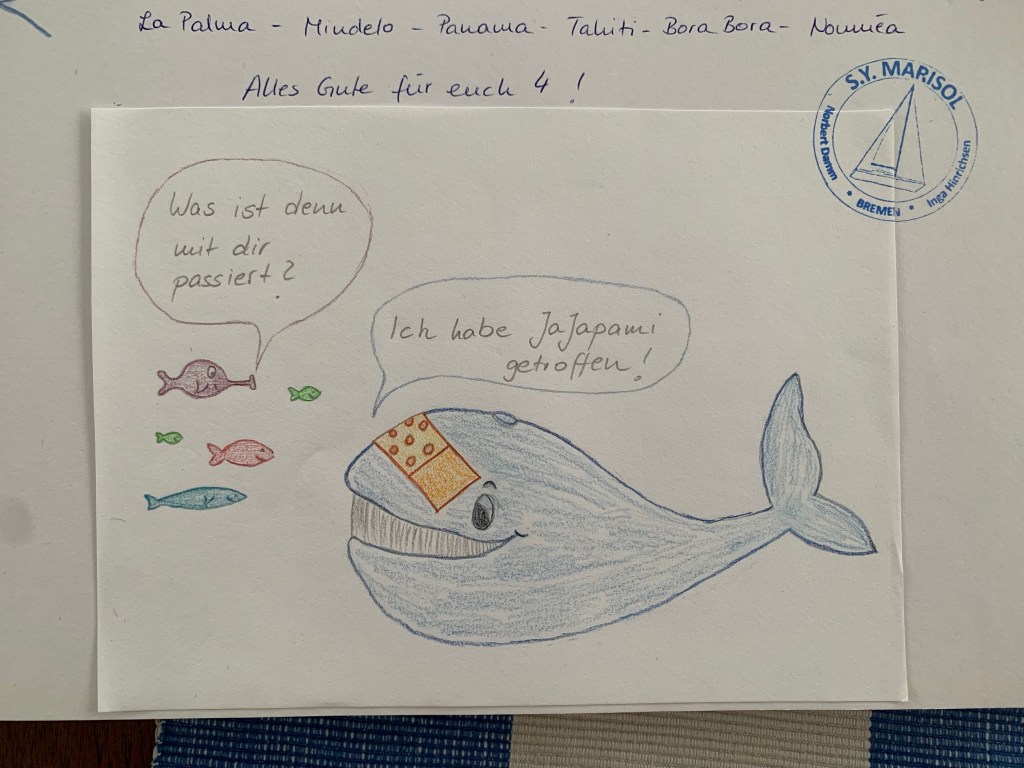 La Palma - Mindelo - Panama - Tahiti - Bora Bora - Nouméa
Alles Gute für euch 4 !
S.Y. MARISOL
Norbert Damm
• BREMEN •
Inga Hinrichsen
Was ist denn
mit dir
passiert?
Ich habe JaJapami
getroffen!